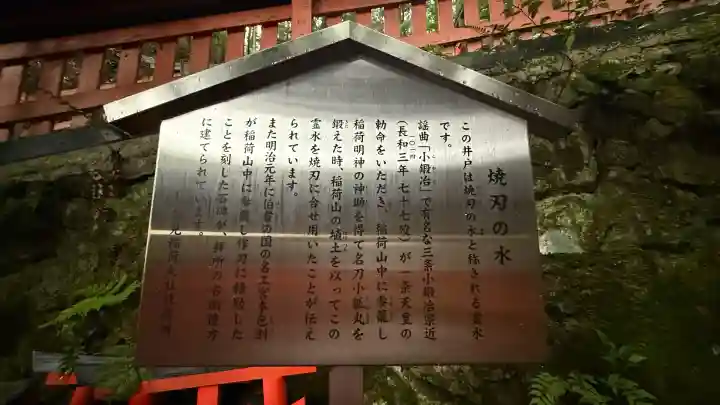 焼刃の水
この井戸は焼刃の水と称される霊水
です。
謡曲「小鍛冶」で有名な三条小鍛冶宗近
(長和三年 七十七歿)が一条天皇の
一〇一四
勅命をいただき、稲荷山中に参籠し
稲荷明神の神助を得て名刀小狐丸を
鍛えた時、稲荷山の埴土を以ってこの
霊水を焼刃に合せ用いたことが伝え
られています。
また明治元年に伯耆の国の名工
が稲荷山中に参籠し作刀に精励した
ことを刻した石碑が、拝所の右側後方
に建てられています。